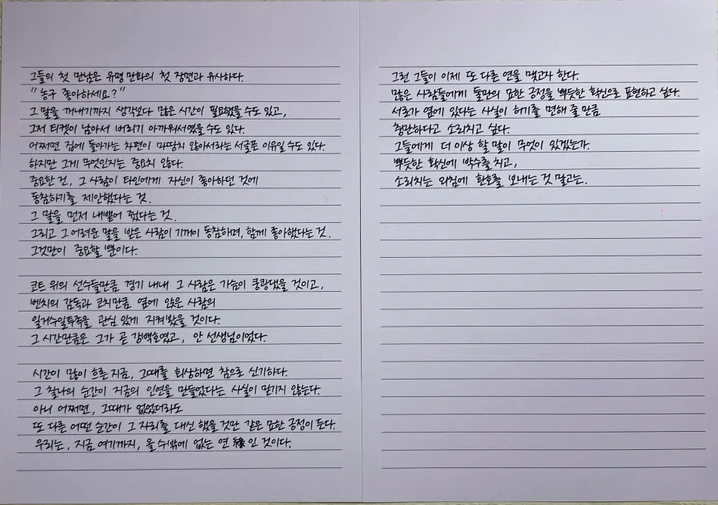 그들의 첫 만남은 유명 만화의 첫 장면과 유사하다.
"농구 좋아하세요?"
그 말을 꺼내기까지 생각보다 많은 시간이 필요했을 수도 있고,
그저 티켓이 남아서 버리기 아까워서였을 수도 있다.
어쩌면 집에 돌아가는 차편이 마땅치 않아서라는 서글픈 이유일 수도 있다.
하지만 그게 무엇인지는 중요치 않다.
중요한 건, 그 사람이 타인에게 자신이 좋아하던 것에
동참하기를 제안했다는 것.
그 말을 먼저 내뱉어 줬다는 것.
그리고 그 어려운 말을 받은 사람이 기꺼이 동참하며, 함께 좋아했다는 것.
그것만이 중요할 뿐이다.
코트 위의 선수들만큼 경기 내내 그 사람은 가슴이 쿵쾅댔을 것이고,
벤치의 감독과 코치만큼 옆에 앉은 사람의
일거수일투족을 관심 있게 지켜봤을 것이다.
그 시간만큼은 그가 곧 강백호였고, 안 선생님이었다.
시간이 많이 흐른 지금, 그때를 회상하면 참으로 신기하다.
그 찰나의 순간이 지금의 인연을 만들었다는 사실이 믿기지 않는다.
아니 어쩌면, 그때가 없었더라도
또 다른 어떤 순간이 그 자리를 대신 했을 것만 같은 묘한 긍정이 든다.
우리는, 지금 여기까지, 올 수밖에 없는 연 인 것이다.
그런 그들이 이제 또 다른 연을 맺고자 한다.
많은 사람들에게 둘만의 묘한 긍정을 뿌듯한 확신으로 표현하고 싶다.
서로가 옆에 있다는 사실이 허기를 면해 줄 만큼
청단하다고 소리치고 싶다.
그들에게 더 이상 할 말이 무엇이 있겠는가.
뿌듯한 확신에 박수를 치고,
소리치는 외침에 환호를 보내는 것 말고는.